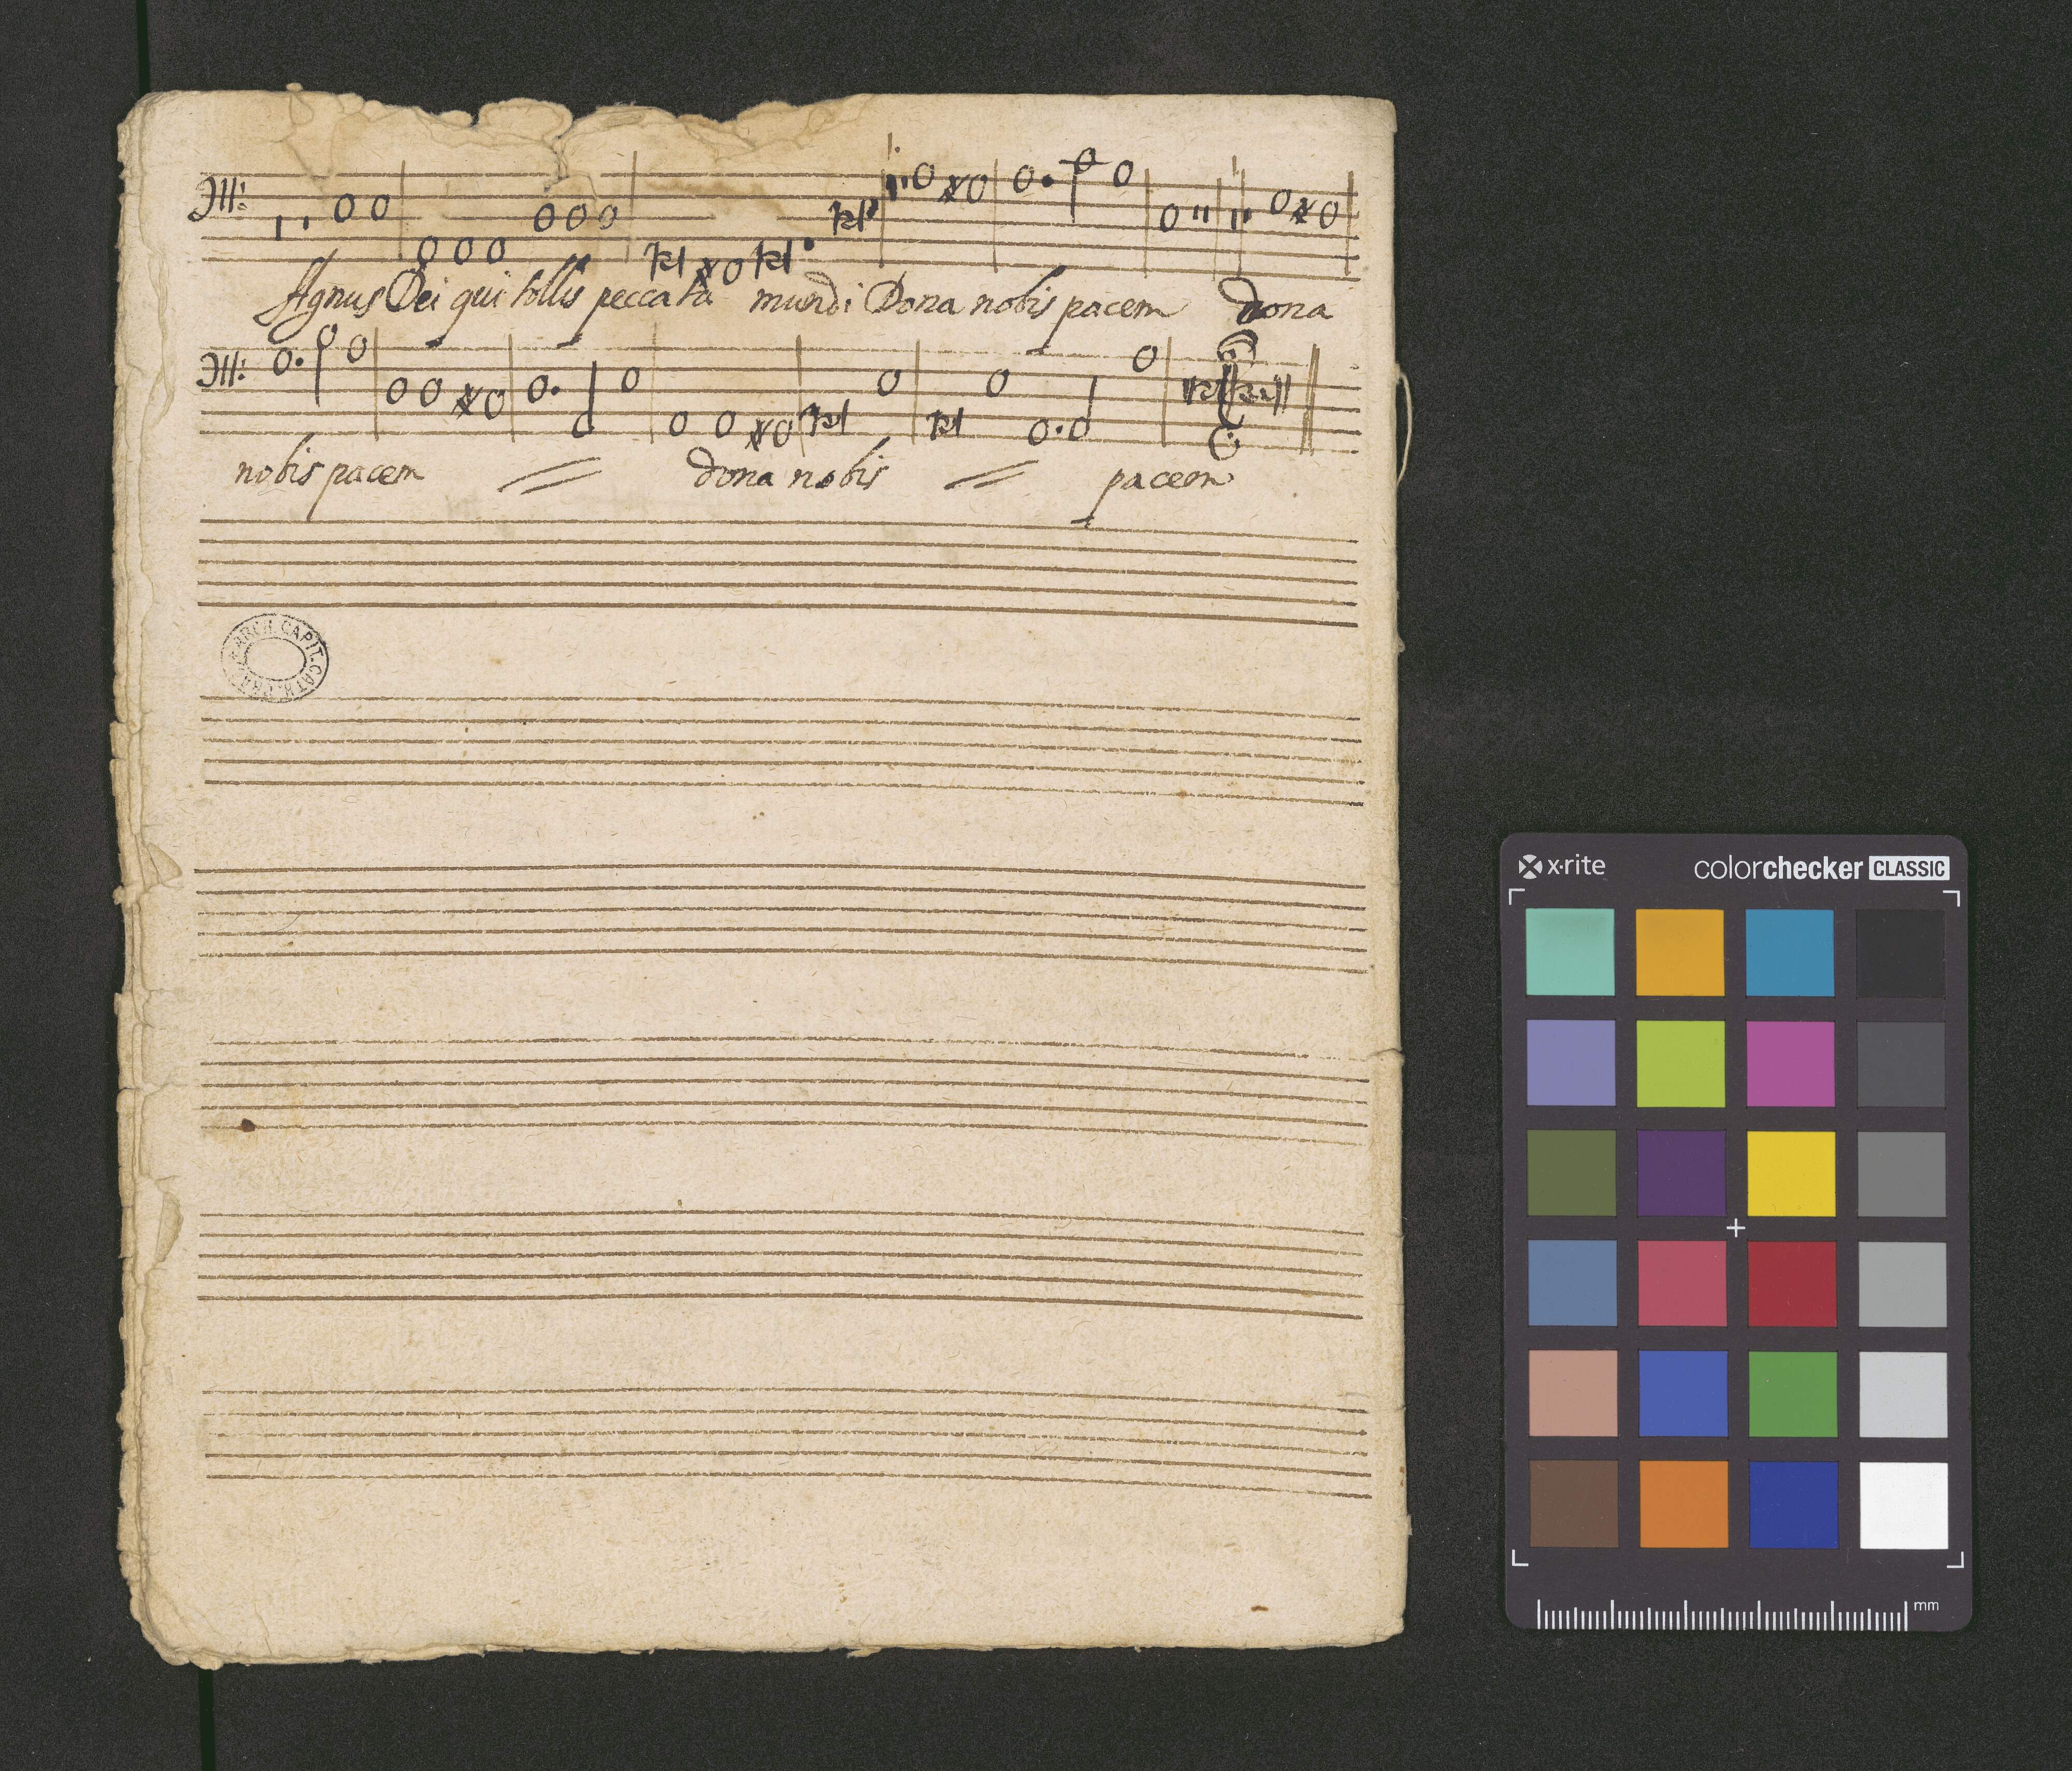 Agnus Dei qui tollis peccata mundi Dona nobis pacem dona
nobis pacem = dona nobis = pacem
ARCH. CAPIT. CATH.
x·rite colorchecker CLASSIC
mm